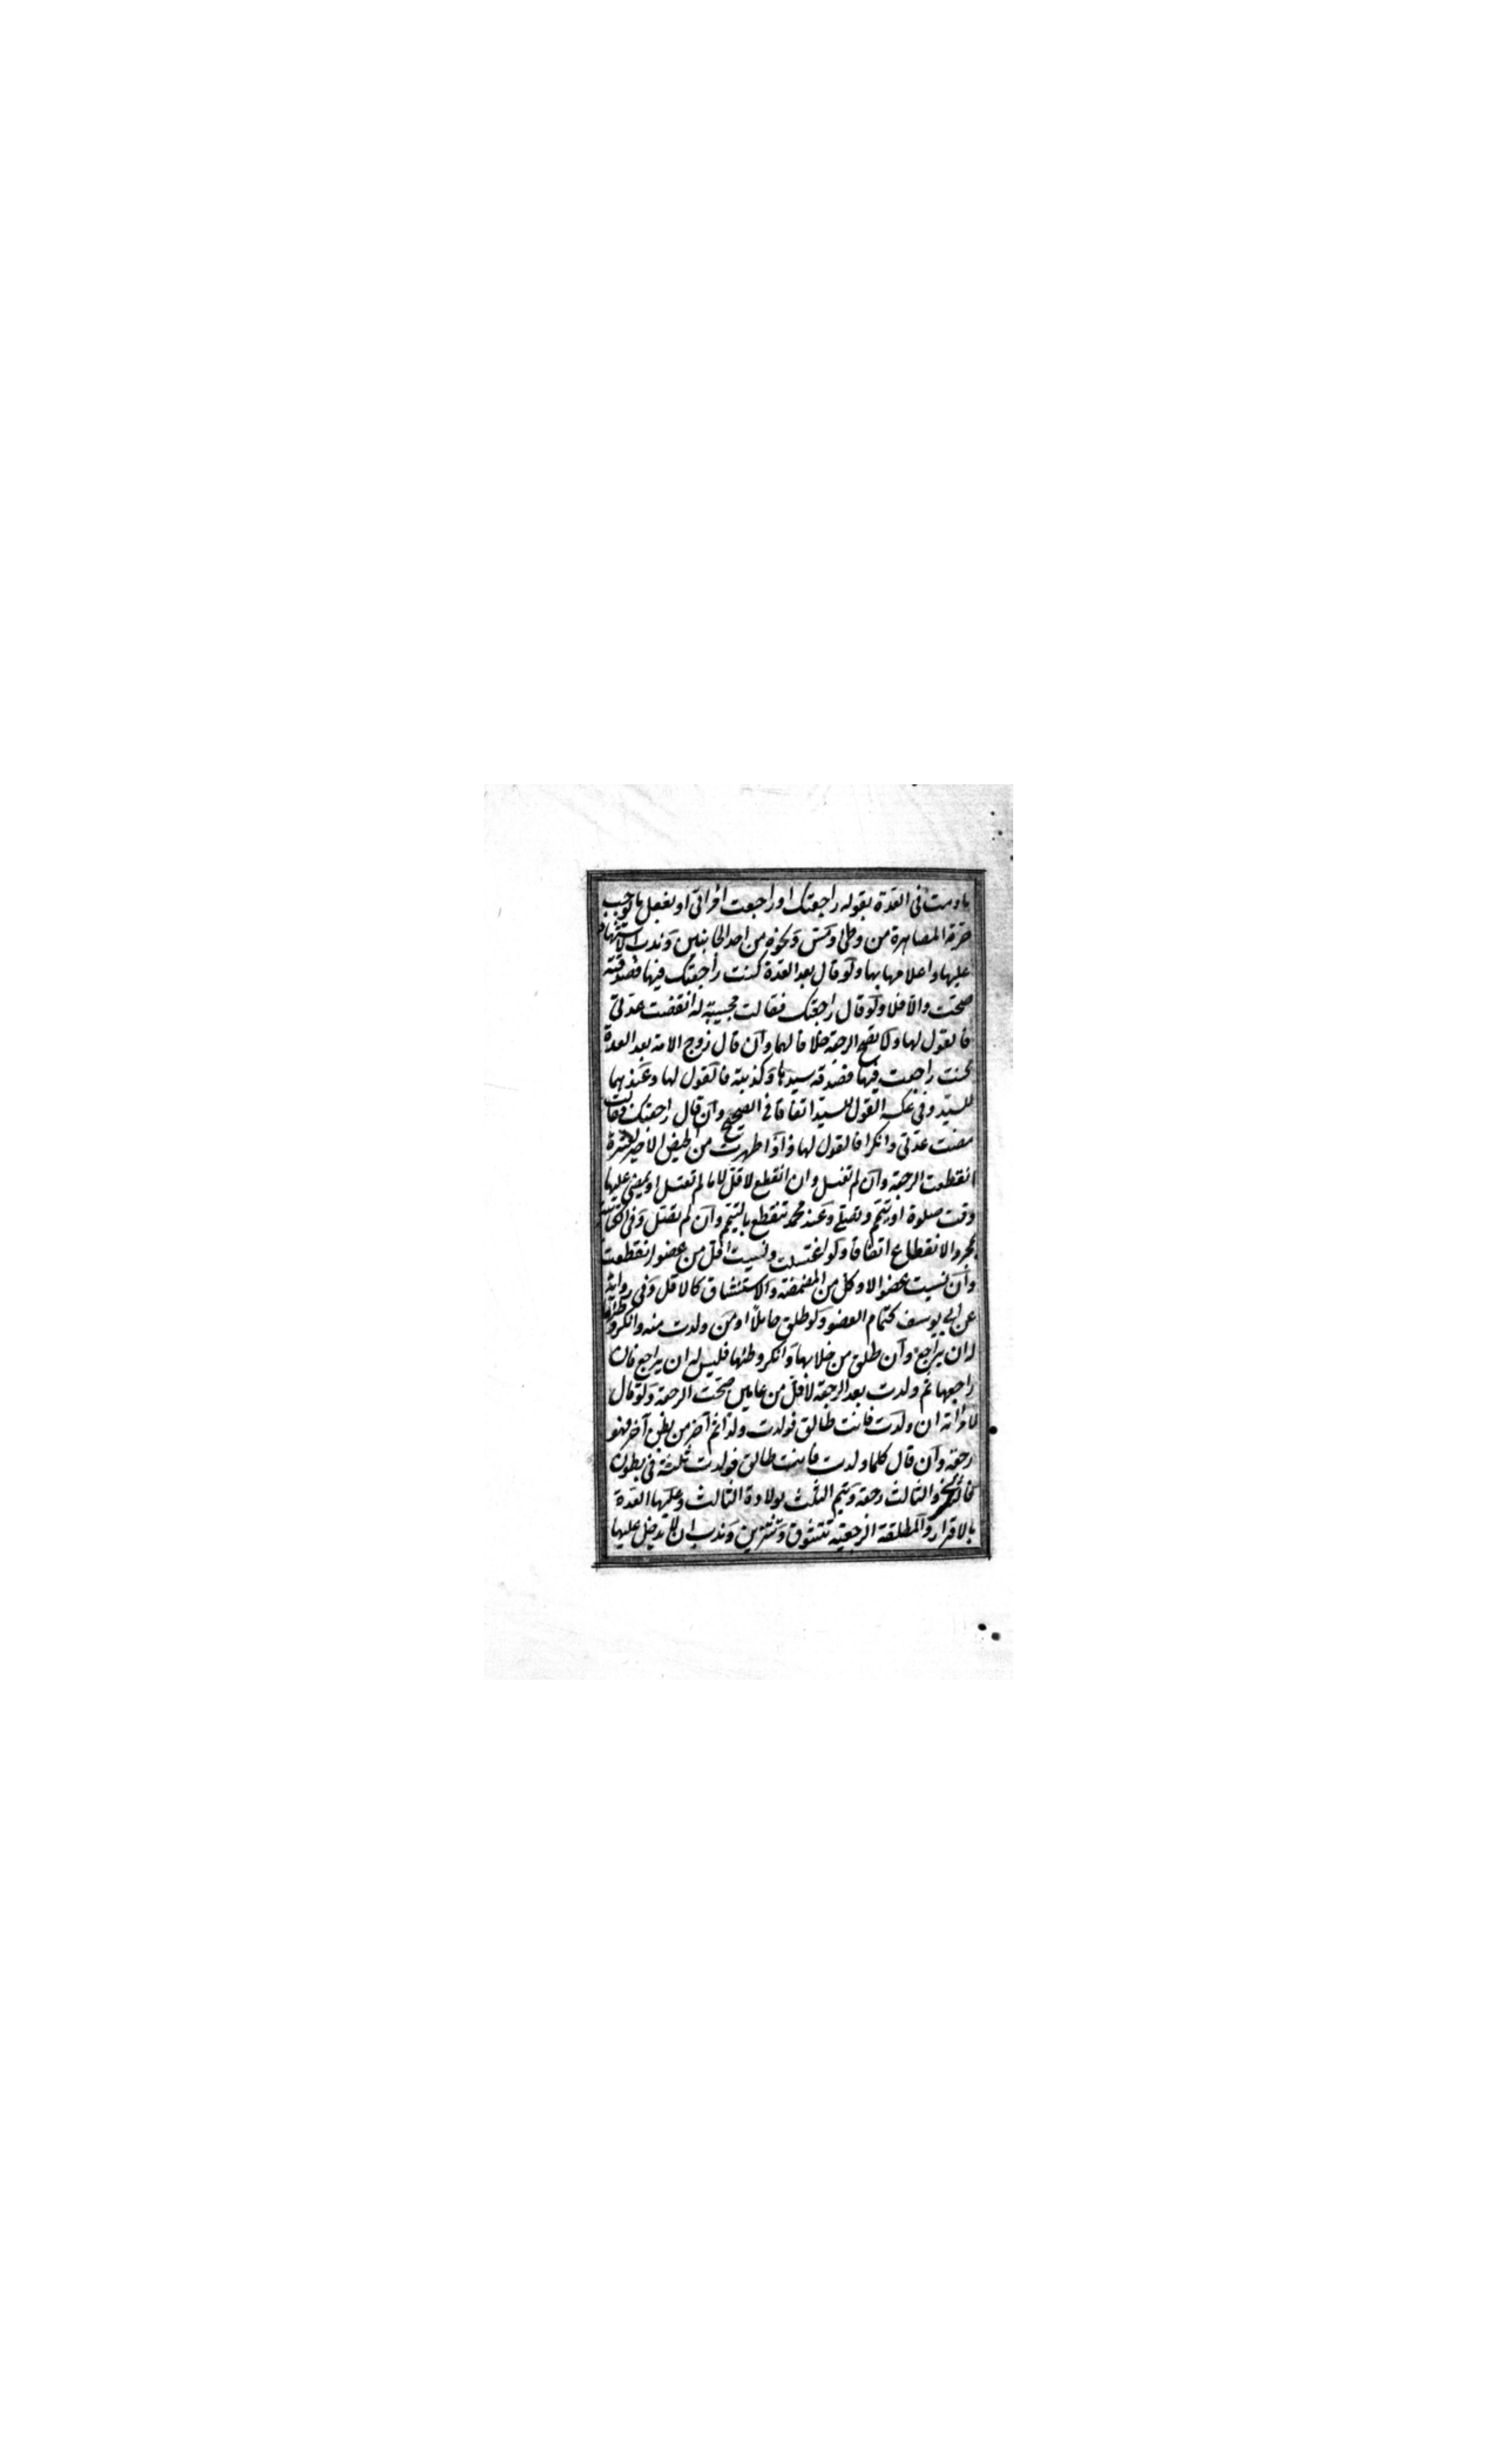 مادمت فى العدة بقوله راجعتك او راجعت امرأتى او بفعل ما يوجب
حرمة المصاهرة من وطئ ومس ونحوه من احد الجانبين وندب الاشهاد
عليها واعلامها بها ولو قال بعد العدة كنت راجعتك فيها فصدقته
صحت والا فلا ولو قال راجعتك فقالت مجيبة له انقضت عدتى
فالقول لها ولا تصح الرجعة خلافا لهما وان قال زوج الامة بعد العدة
كنت راجعت فيها فصدقه سيدها وكذبته فالقول لها وعندهما
للسيد وفى عكسه القول للسيد اتفاقا فى الصحيح وان قال راجعتك فقالت
مضت عدتى وانكرا فالقول لها واذا طهرت من الحيض الاخير لعشرة
انقطعت الرجعة وان لم تغتسل وان انقطع لاقل لا ما لم تغتسل او يمضى عليها
وقت صلوة او تتيمم وتصلى وعند محمد تنقطع بالتيمم وان لم تصل وفى الكتابية
بمجرد الانقطاع اتفاقا ولو اغتسلت ونسيت اقل من عضو انقطعت
وان نسيت عضوا لا وكل من المضمضة والاستنشاق كالاقل وفى رواية
عن ابى يوسف كتمام العضو ولو طلق حاملا او من ولدت منه وانكر وطئها
له ان يراجع وان طلق من خلا بها وانكر وطئها فليس له ان يراجع فان
راجعها ثم ولدت بعد الرجعة لاقل من عامين صحت الرجعة ولو قال
لامرأته ان ولدت فانت طالق فولدت ولدا ثم آخر من بطن آخر فهو
رجعة وان قال كلما ولدت فانت طالق فولدت ثلثة فى بطون
والثالث رجعة وتتم الثلث بولادة الثالث وعليها العدة
بالاقرار والمطلقة الرجعية تتشوق وتتزين وندب ان لا يدخل عليها